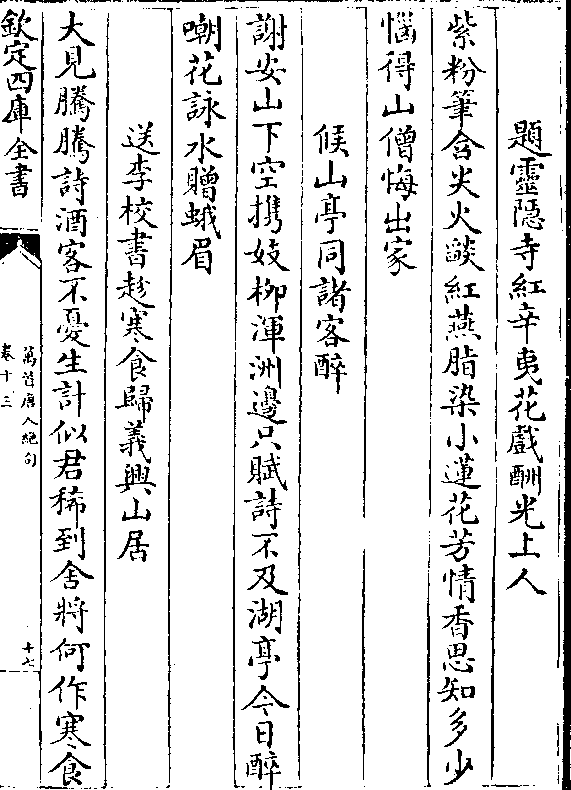 題靈隠寺紅辛夷花戲酬光上人
紫粉筆含尖火燄紅燕脂染小蓮花芳情香思知多少
惱得山僧悔出家
候山亭同諸客醉
謝安山下空攜妓柳渾洲邊只賦詩不及湖亭今日醉
嘲花詠水贈蛾眉
送李校書趂寒食歸義興山居
大見騰騰詩酒客不憂生計似君稀到舍將何作寒食
欽定四庫全書
萬首唐人絶句
卷十三
十七